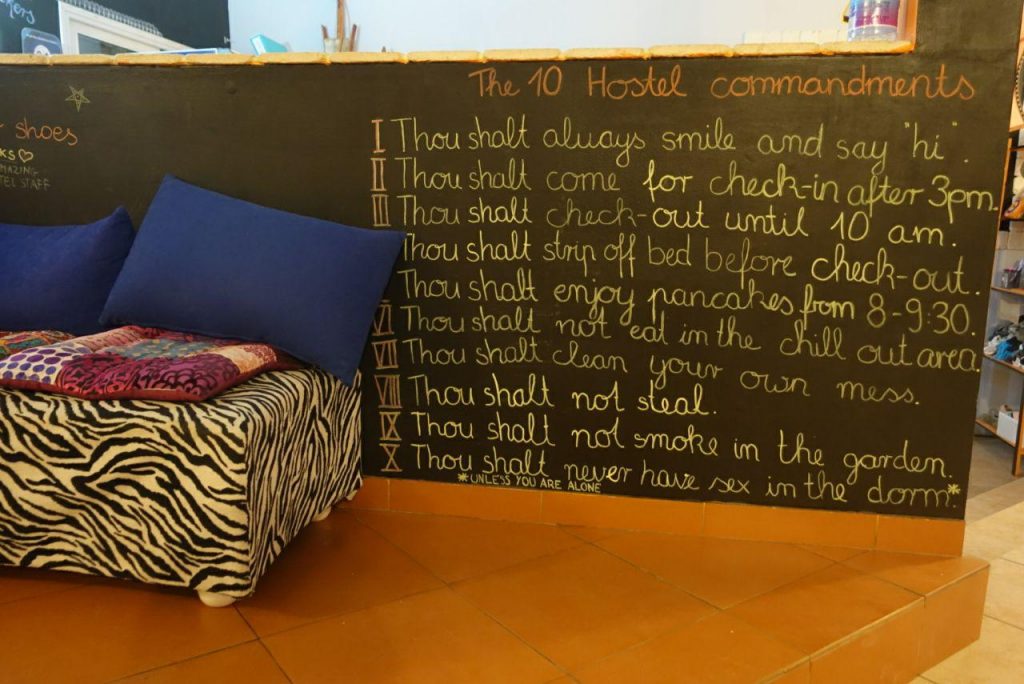 shoes
KS♡
MAZING
TEL STAFF
The 10 Hostel commandments
I Thou shalt always smile and say "hi".
II Thou shalt come for check-in after 3pm.
III Thou shalt check-out until 10 am.
Thou shalt strip off bed before check-out.
Thou shalt enjoy pancakes from 8-9:30.
VI Thou shalt not eat in the chill out area.
VII Thou shalt clean your own mess.
VIII Thou shalt not steal.
IX Thou shalt not smoke in the garden.
X Thou shalt never have sex in the dorm*
*UNLESS YOU ARE ALONE